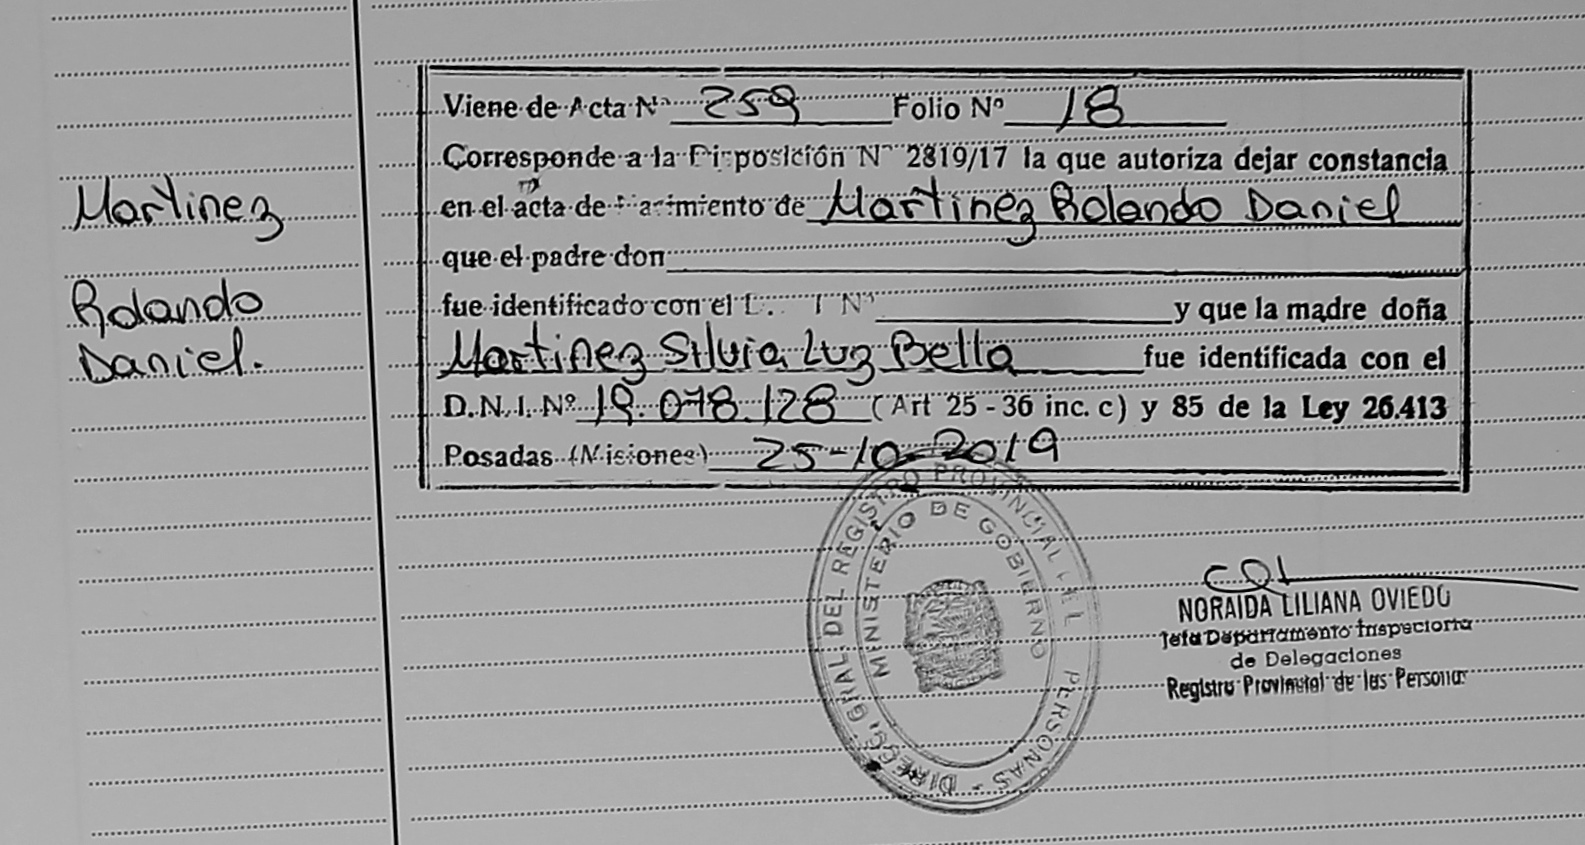 Martinez
Rolando
Daniel.
Viene de Acta Nº 259 Folio Nº 18
Corresponde a la Disposición Nº 2819/17 la que autoriza dejar constancia
en el acta de nacimiento de Martinez Rolando Daniel
que el padre don
fue identificado con el Nº y que la madre doña
Martinez Silvia Luz Bella fue identificada con el
D.N.I. Nº 19.078.128 (Art 25 - 36 inc. c) y 85 de la Ley 26.413
Posadas (Misiones) 25-10-2019
DIRECC. GRAL. DEL REGISTRO PROVINCIAL PERSONAS -
MINISTERIO DE GOBIERNO
NORAIDA LILIANA OVIEDO
Jefa Departamento Inspectoria
de Delegaciones
Registro Provincial de las Personas